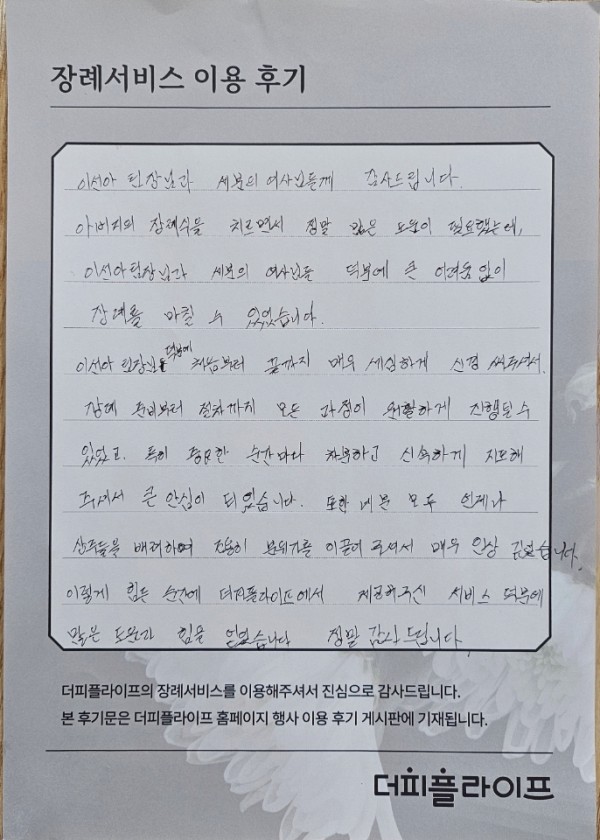 장례서비스 이용 후기
이선아 팀장님과 세분의 여사님들께 감사드립니다.
아버지의 장례식을 치르면서 정말 많은 도움이 필요했는데,
이선아팀장님과 세분의 여사님들 덕분에 큰 어려움 없이
장례를 마칠 수 있었습니다.
이선아 팀장님 덕분에 처음부터 끝까지 매우 세심하게 신경 써주셔서,
장례 준비부터 절차까지 모든 과정이 원활하게 진행될 수
있었고. 특히 중요한 순간마다 차분하고 신속하게 지도해
주셔서 큰 안심이 되었습니다. 또한 네분 모두 언제나
상주들을 배려하며 조용히 분위기를 이끌어 주셔서 매우 인상 깊었습니다.
이렇게 힘든 순간에 더피플라이프에서 제공해주신 서비스 덕분에
많은 도움과 힘을 얻었습니다 정말 감사드립니다.
더피플라이프의 장례서비스를 이용해주셔서 진심으로 감사드립니다.
본 후기문은 더피플라이프 홈페이지 행사 이용 후기 게시판에 기재됩니다.
더피플라이프